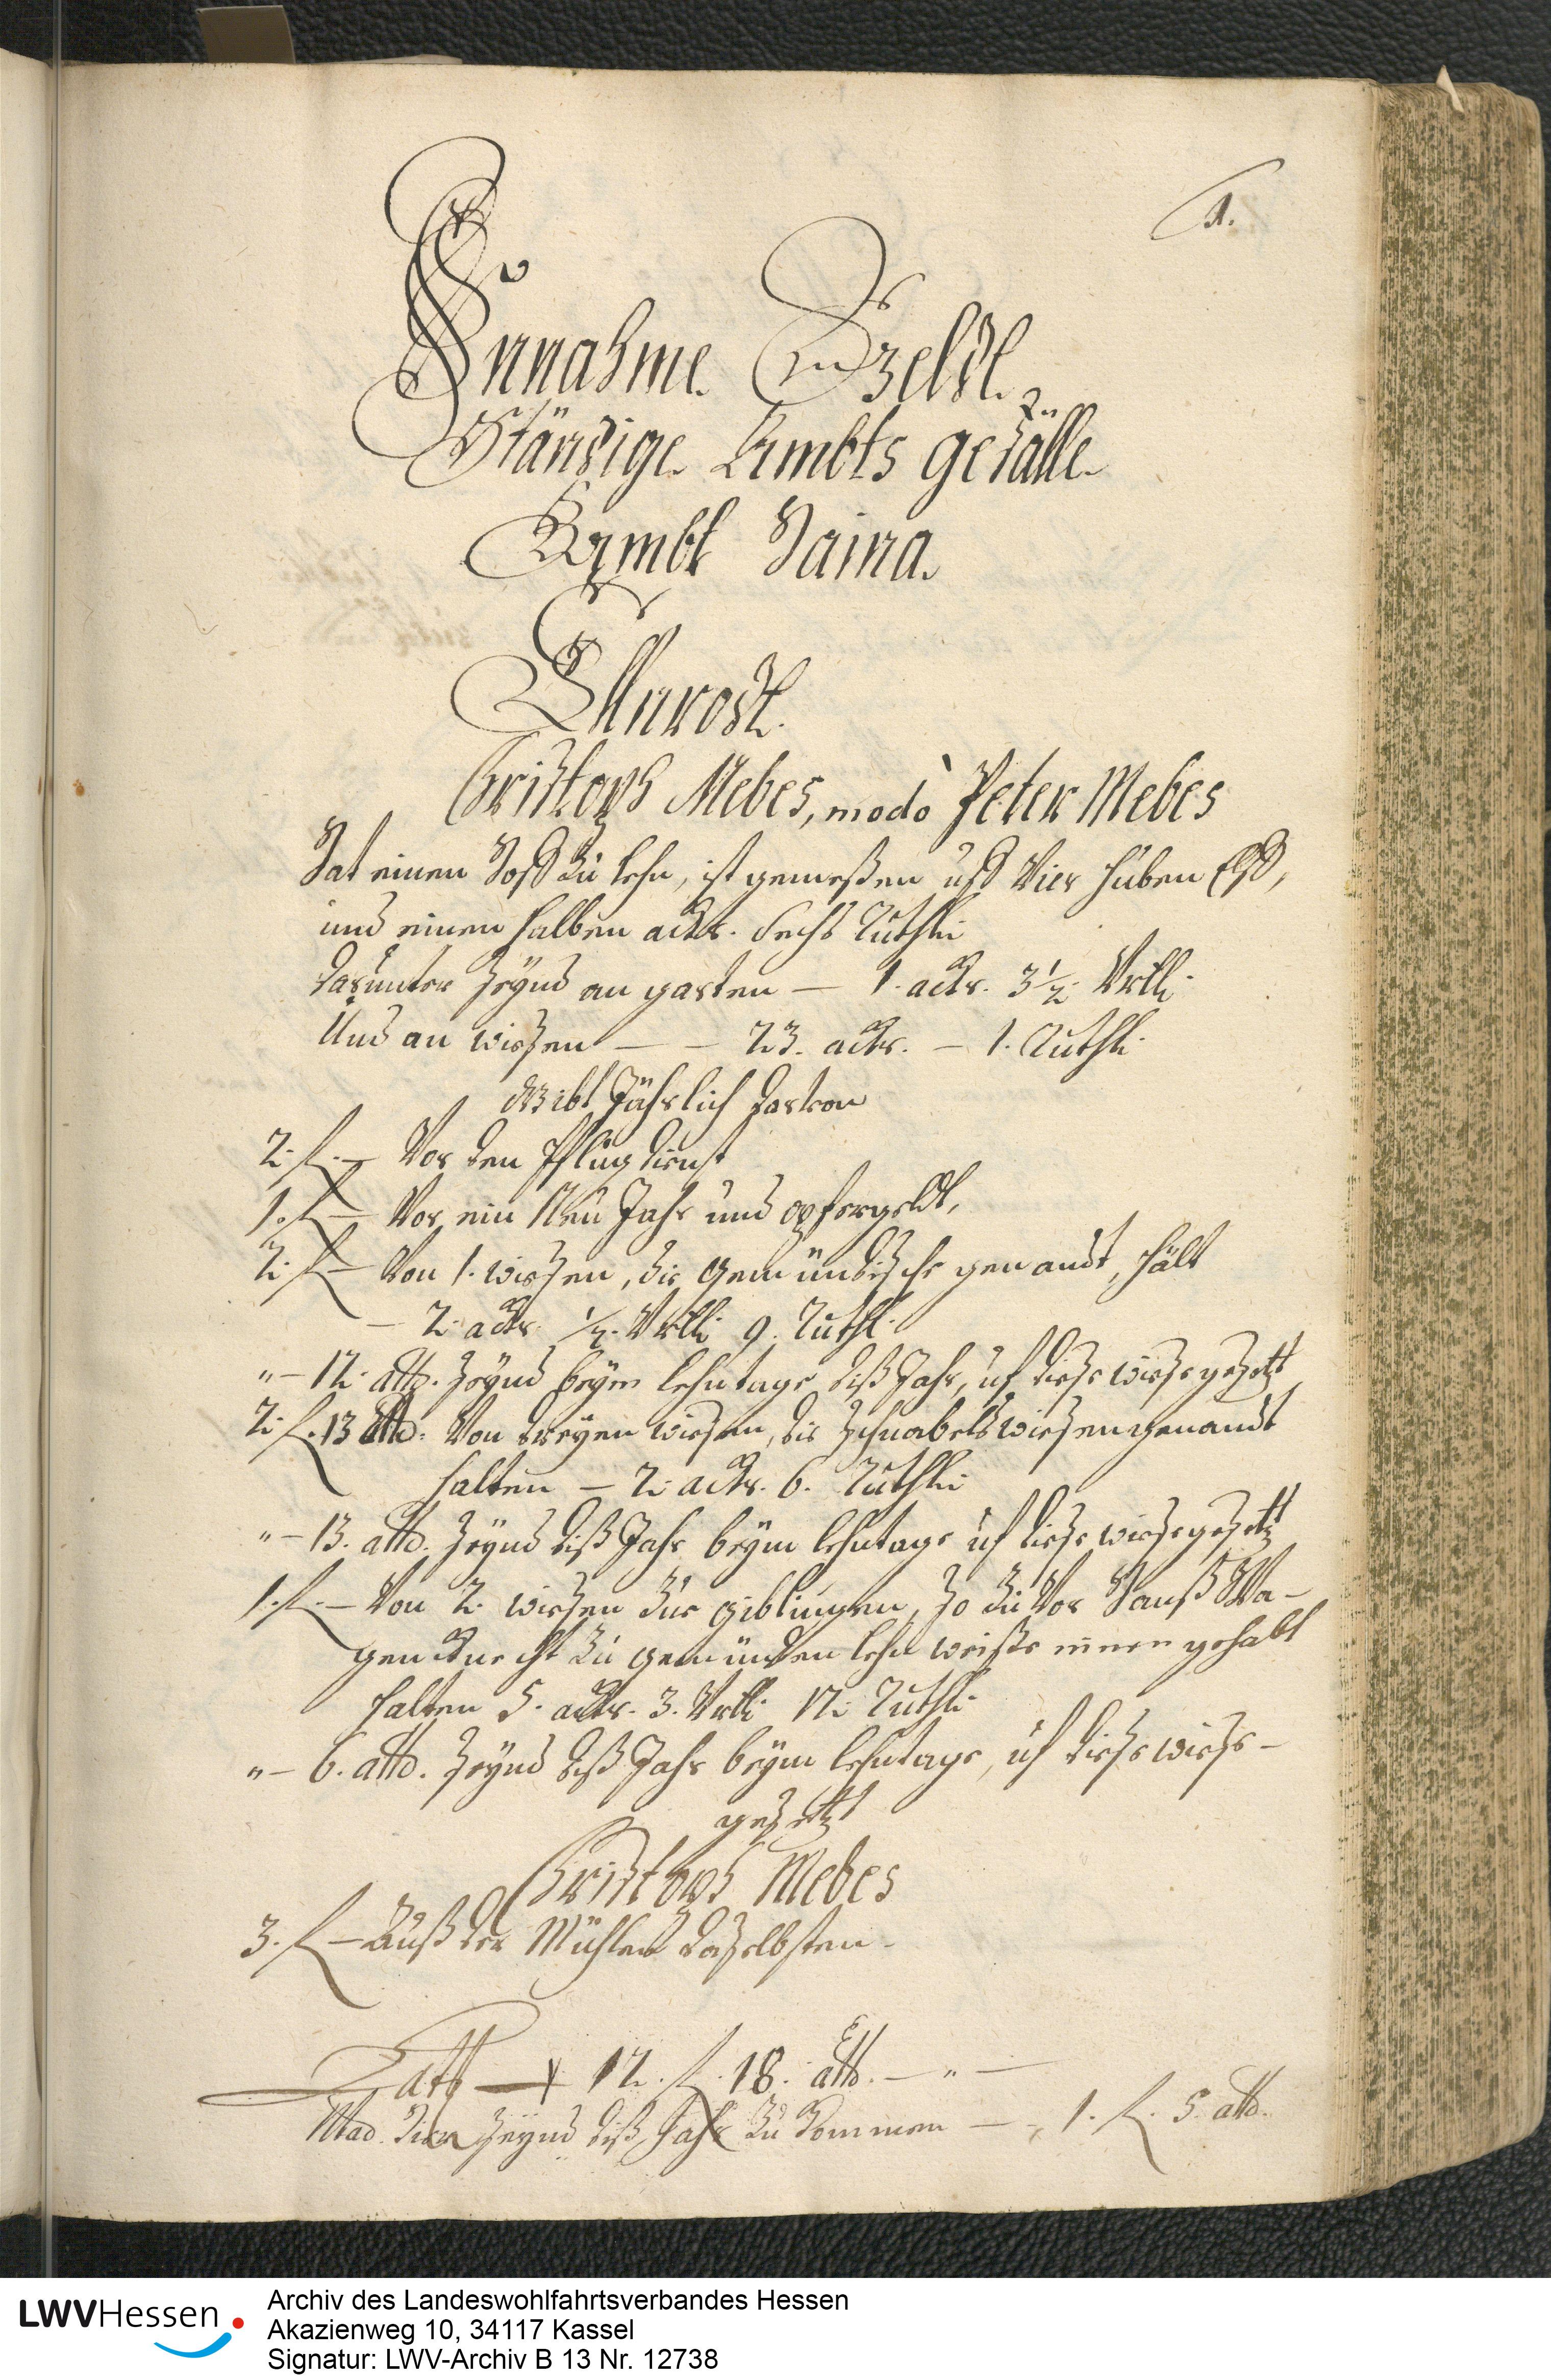 1.
Einnahme Geldt
Ständige Ambts gefälle
Ambt Haina.
Ellnrodt.
Christoph Mebes, modo Peter Mebes
Hat einen Hoff zu lehn, ist gemeßen uff Vier huben
und einen halben ackr. Sechs Ruthen
darunter seynd an garten — 1. ackr. 3½ Vrtll.
Und an wiesen — — 23. ackr. — 1. Ruthl.
Gibt Jährlich darvon
2. fl. — Vor den Pflugdienst
1. fl. — Vor ein Neu Jahr und opfergeldt,
2. fl. — Von 1. wiesen, die Gemündische genandt, hält
— 2. ackr. ½. Vrtll. 9. Ruthl.
" — 12. alb. seynd beym lehntage diß Jahr, uf diese wiese gesetzt
2. fl. 13 alb. Von dreyen wiesen, die Schnabelswiesen genandt
halten — 2. ackr. 6. Ruthen
" — 13. alb. seynd diß Jahr beym lehntage uf diese wiese gesetzt
1. fl. — Von 2. wiesen zue giblingen, so zu Vor Hanß Wa-
gen Knecht zu gemünden lehn weiße innen gehabt
halten 5. ackr. 3. Vrtll. 12. Ruthl.
" — 6. alb. seynd diß Jahr beym lehntage, uf diese wiese —
gesetzt
Christoph Mebes
3. fl. — Auß der Mühlen daselbsten.
Latus — 12. fl. 18. alb. — " —
seynd diß Jahr zu kommen — 1. fl. 5. alb.
LWVHessen
Archiv des Landeswohlfahrtsverbandes Hessen
Akazienweg 10, 34117 Kassel
Signatur: LWV-Archiv B 13 Nr. 12738